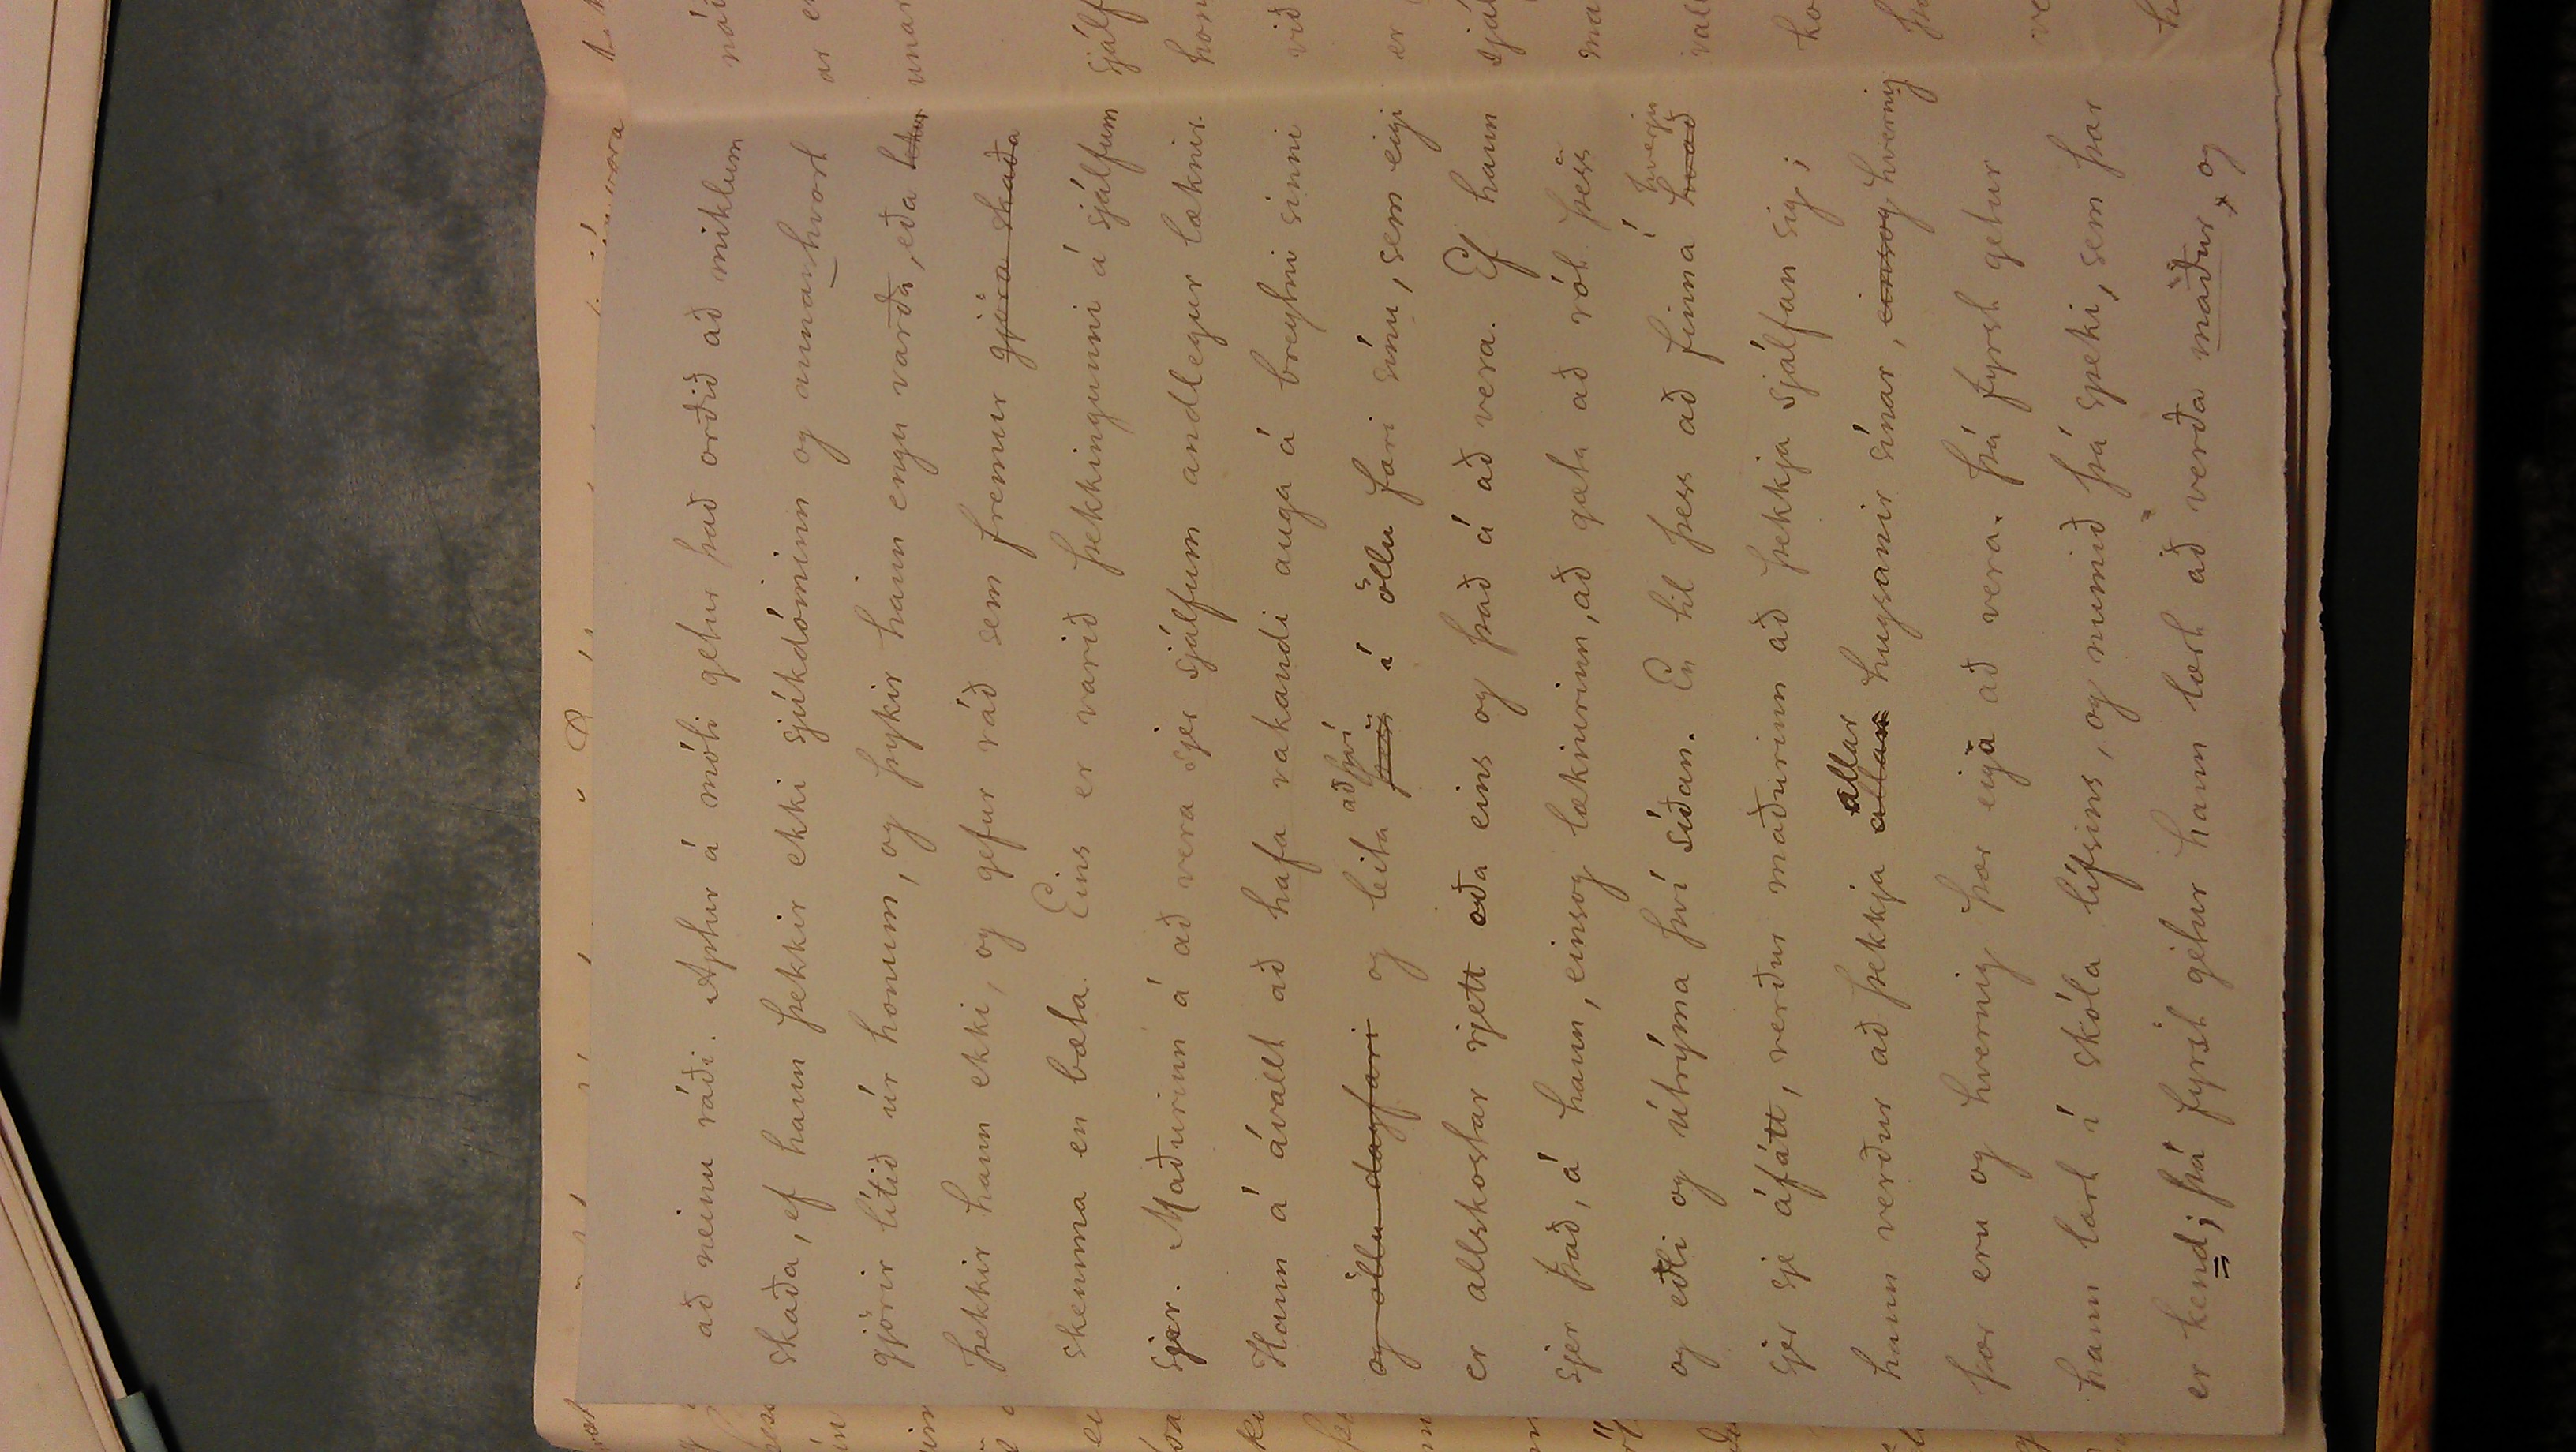 að neinu ráði. Aptur á móti getur það orðið að miklum
skaða, ef hann þekkir ekki sjúkdóminn og annanhvort
gjörir lítið úr honum, og þykir hann engu varða, eða
þekkir hann ekki, og gefur ráð sem fremur gjöra skaða
skemma en bæta. Eins er varið þekkingunni á sjálfum
sjer. Maðurinn á að vera sjer sjálfum andlegur læknir.
Hann á ávallt að hafa vakandi auga á breytni sinni
og öllu dagfari og leita að því í öllu fari sínu, sem eigi
er allskostar rjett eða eins og það á að vera. Ef hann
sjer það, á hann, einsog læknirinn, að gæta að rót þess
og eðli og útrýma því síðan. En til þess að finna hvað hverju
sjer sje áfátt, verður maðurinn að þekkja sjálfan sig;
hann verður að þekkja allan allar hugsanir sínar, einsog hvernig
þær eru og hvernig þær eiga að vera. Þá fyrst getur
hann lært í skóla lífsins, og numið þá speki, sem þar
er kend; þá fyrst getur hann lært að verða maður, og